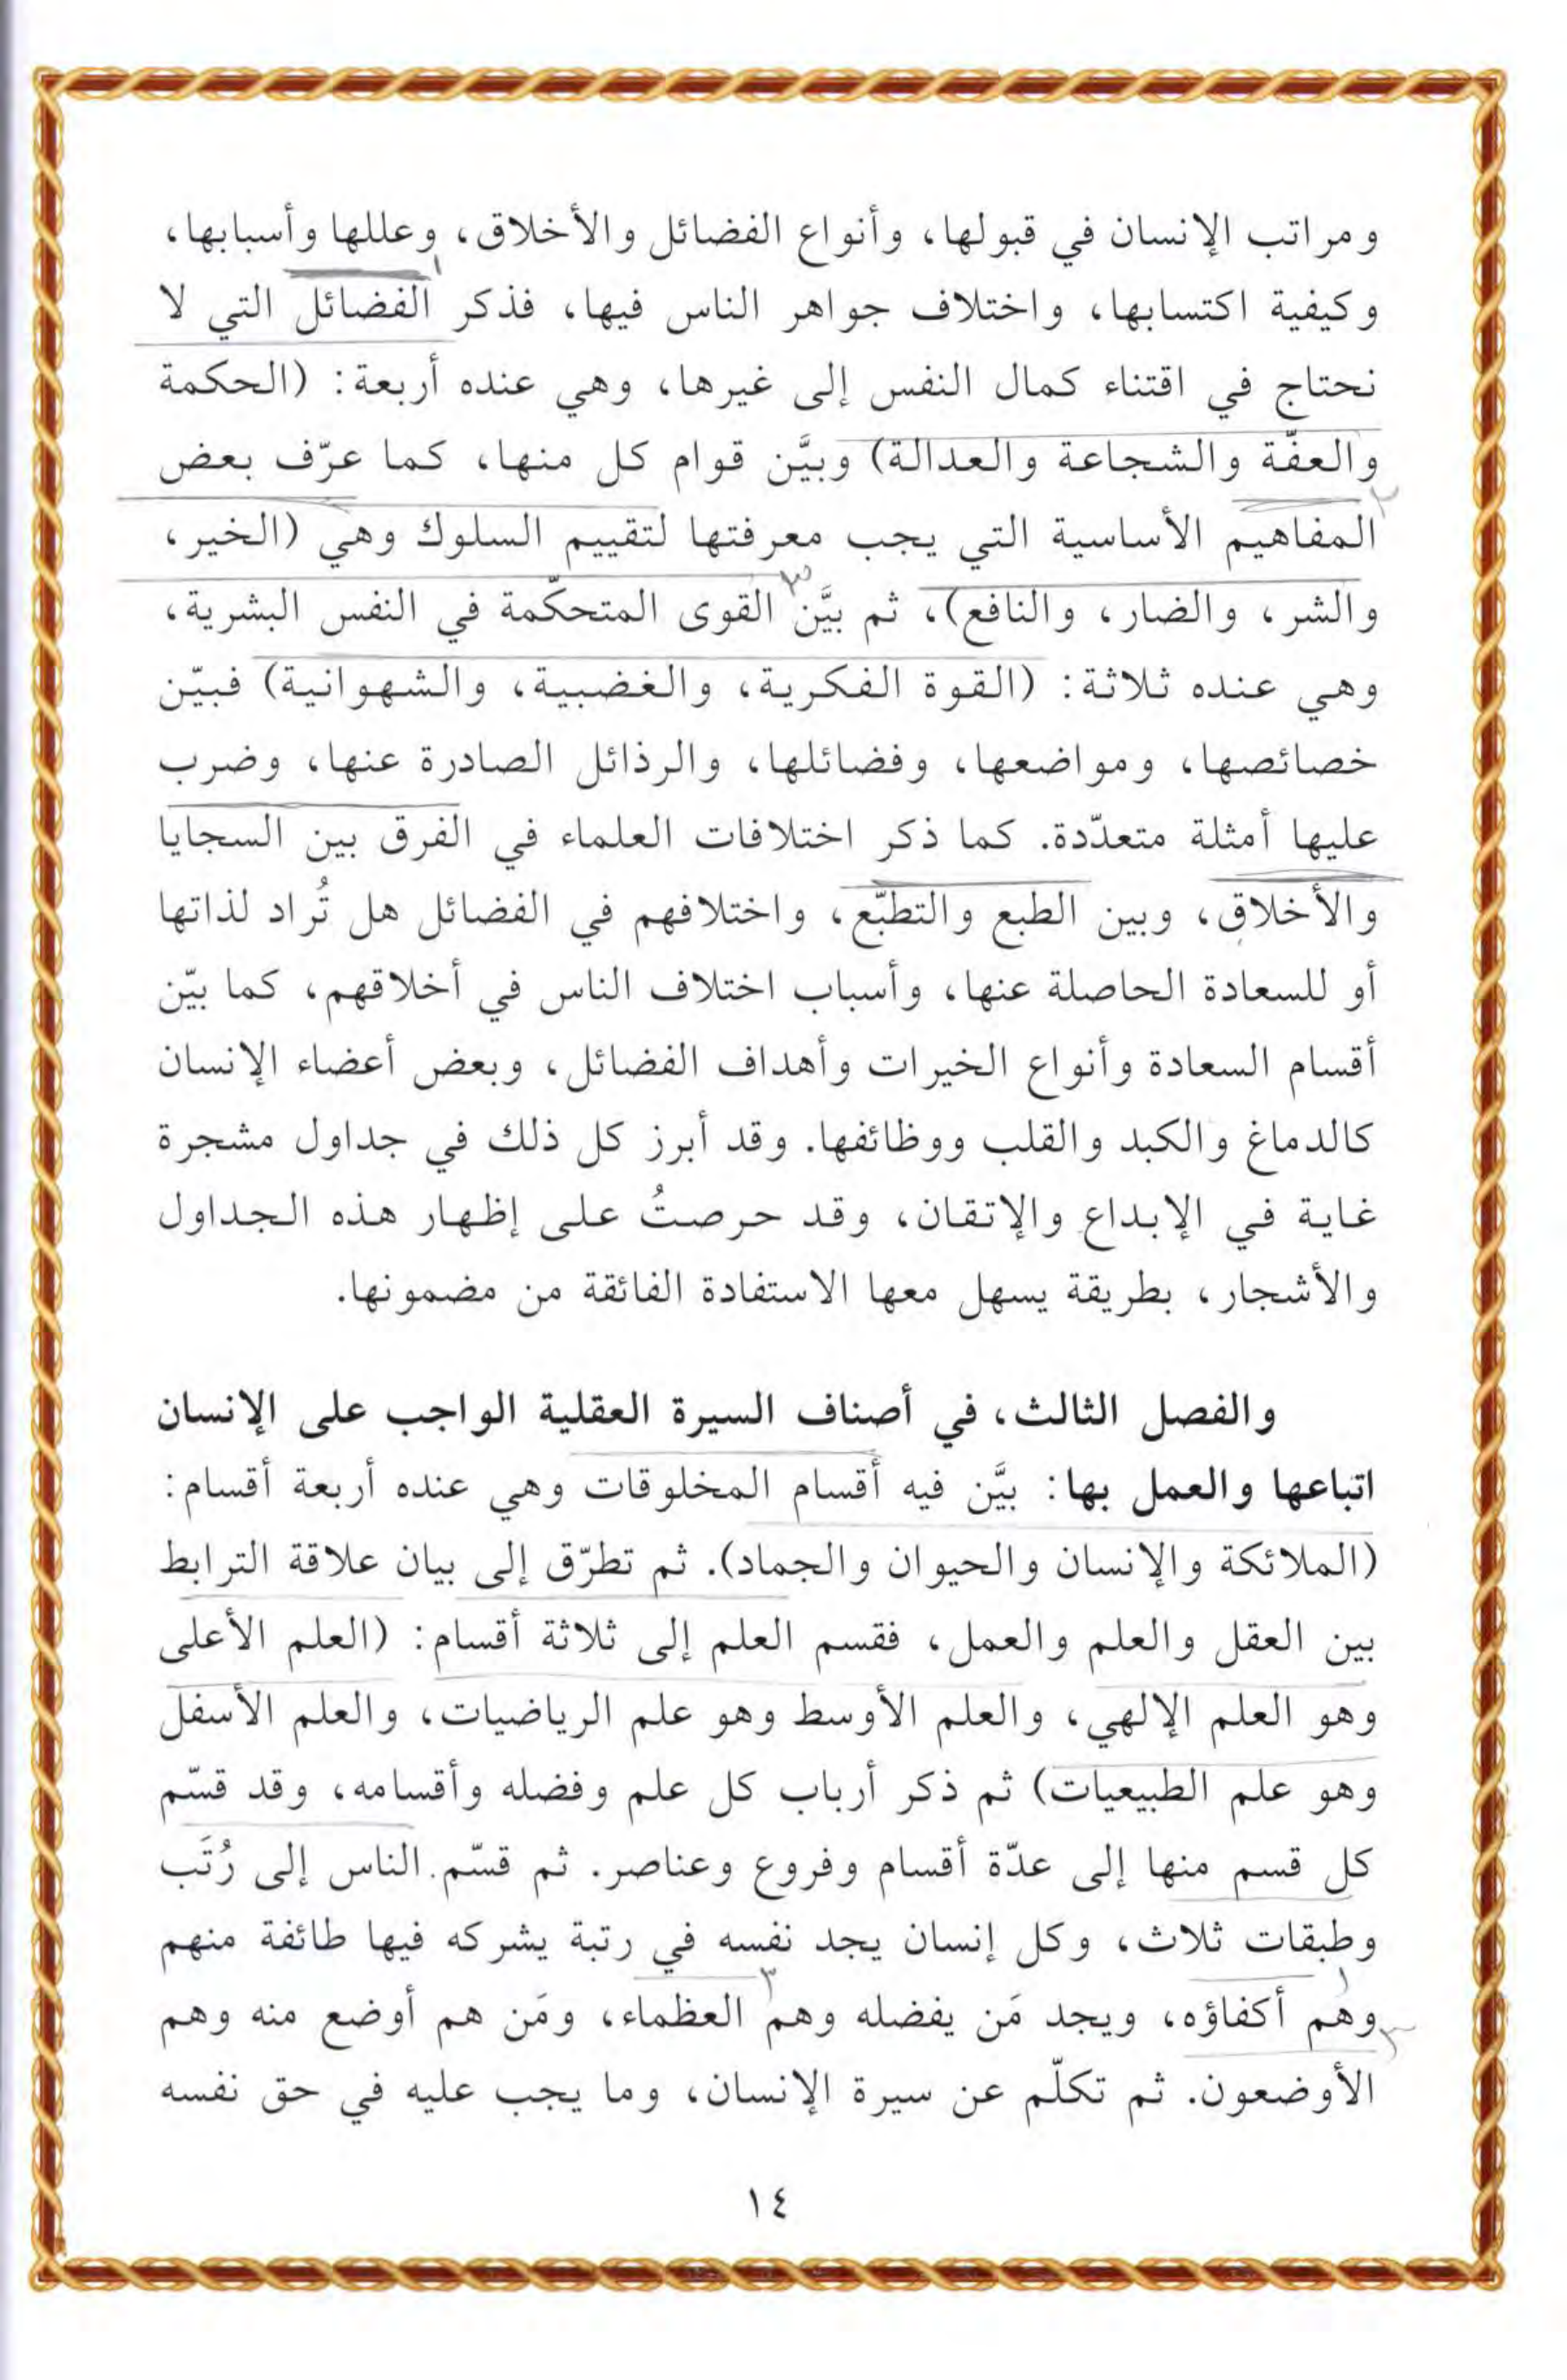 ومراتب الإنسان في قبولها، وأنواع الفضائل والأخلاق، وعللها وأسبابها،
وكيفية اكتسابها، واختلاف جواهر الناس فيها، فذكر الفضائل التي لا
نحتاج في اقتناء كمال النفس إلى غيرها، وهي عنده أربعة: (الحكمة
والعفّة والشجاعة والعدالة) وبيَّن قوام كل منها، كما عرّف بعض
المفاهيم الأساسية التي يجب معرفتها لتقييم السلوك وهي (الخير،
والشر، والضار، والنافع)، ثم بيَّن القوى المتحكّمة في النفس البشرية،
وهي عنده ثلاثة: (القوة الفكرية، والغضبية، والشهوانية) فبيّن
خصائصها، ومواضعها، وفضائلها، والرذائل الصادرة عنها، وضرب
عليها أمثلة متعدّدة. كما ذكر اختلافات العلماء في الفرق بين السجايا
والأخلاق، وبين الطبع والتطبّع، واختلافهم في الفضائل هل تُراد لذاتها
أو للسعادة الحاصلة عنها، وأسباب اختلاف الناس في أخلاقهم، كما بيّن
أقسام السعادة وأنواع الخيرات وأهداف الفضائل، وبعض أعضاء الإنسان
كالدماغ والكبد والقلب ووظائفها. وقد أبرز كل ذلك في جداول مشجرة
غاية في الإبداع والإتقان، وقد حرصتُ على إظهار هذه الجداول
والأشجار، بطريقة يسهل معها الاستفادة الفائقة من مضمونها.
والفصل الثالث، في أصناف السيرة العقلية الواجب على الإنسان
اتباعها والعمل بها: بيَّن فيه أقسام المخلوقات وهي عنده أربعة أقسام:
(الملائكة والإنسان والحيوان والجماد). ثم تطرّق إلى بيان علاقة الترابط
بين العقل والعلم والعمل، فقسم العلم إلى ثلاثة أقسام: (العلم الأعلى
وهو العلم الإلهي، والعلم الأوسط وهو علم الرياضيات، والعلم الأسفل
وهو علم الطبيعيات) ثم ذكر أرباب كل علم وفضله وأقسامه، وقد قسّم
كل قسم منها إلى عدّة أقسام وفروع وعناصر. ثم قسّم الناس إلى رُتَب
وطبقات ثلاث، وكل إنسان يجد نفسه في رتبة يشركه فيها طائفة منهم
وهم أكفاؤه، ويجد مَن يفضله وهم العظماء، ومَن هم أوضع منه وهم
الأوضعون. ثم تكلّم عن سيرة الإنسان، وما يجب عليه في حق نفسه
١٤